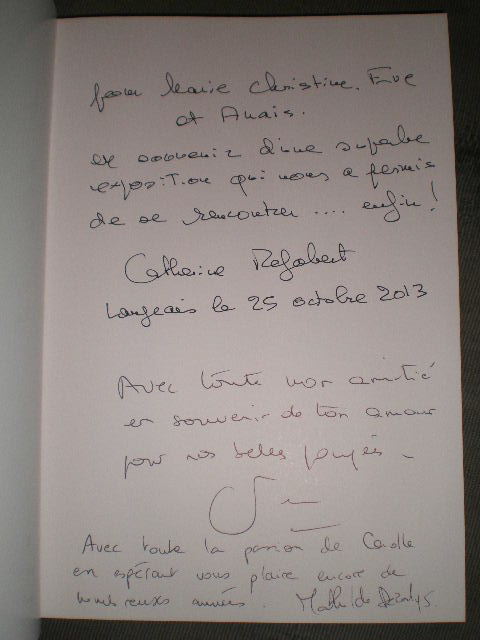 pour Marie Christine. Eve
et Anaïs.
en souvenir d'une superbe
exposition qui nous a permis
de se rencontrer .... enfin !
Catherine
Langeais le 25 octobre 2013
Avec toute mon amitié
en souvenir de ton amour
pour nos belles poupées
Avec toute la passion de
en espérant vous plaire encore de
nombreuses années. Mathilde